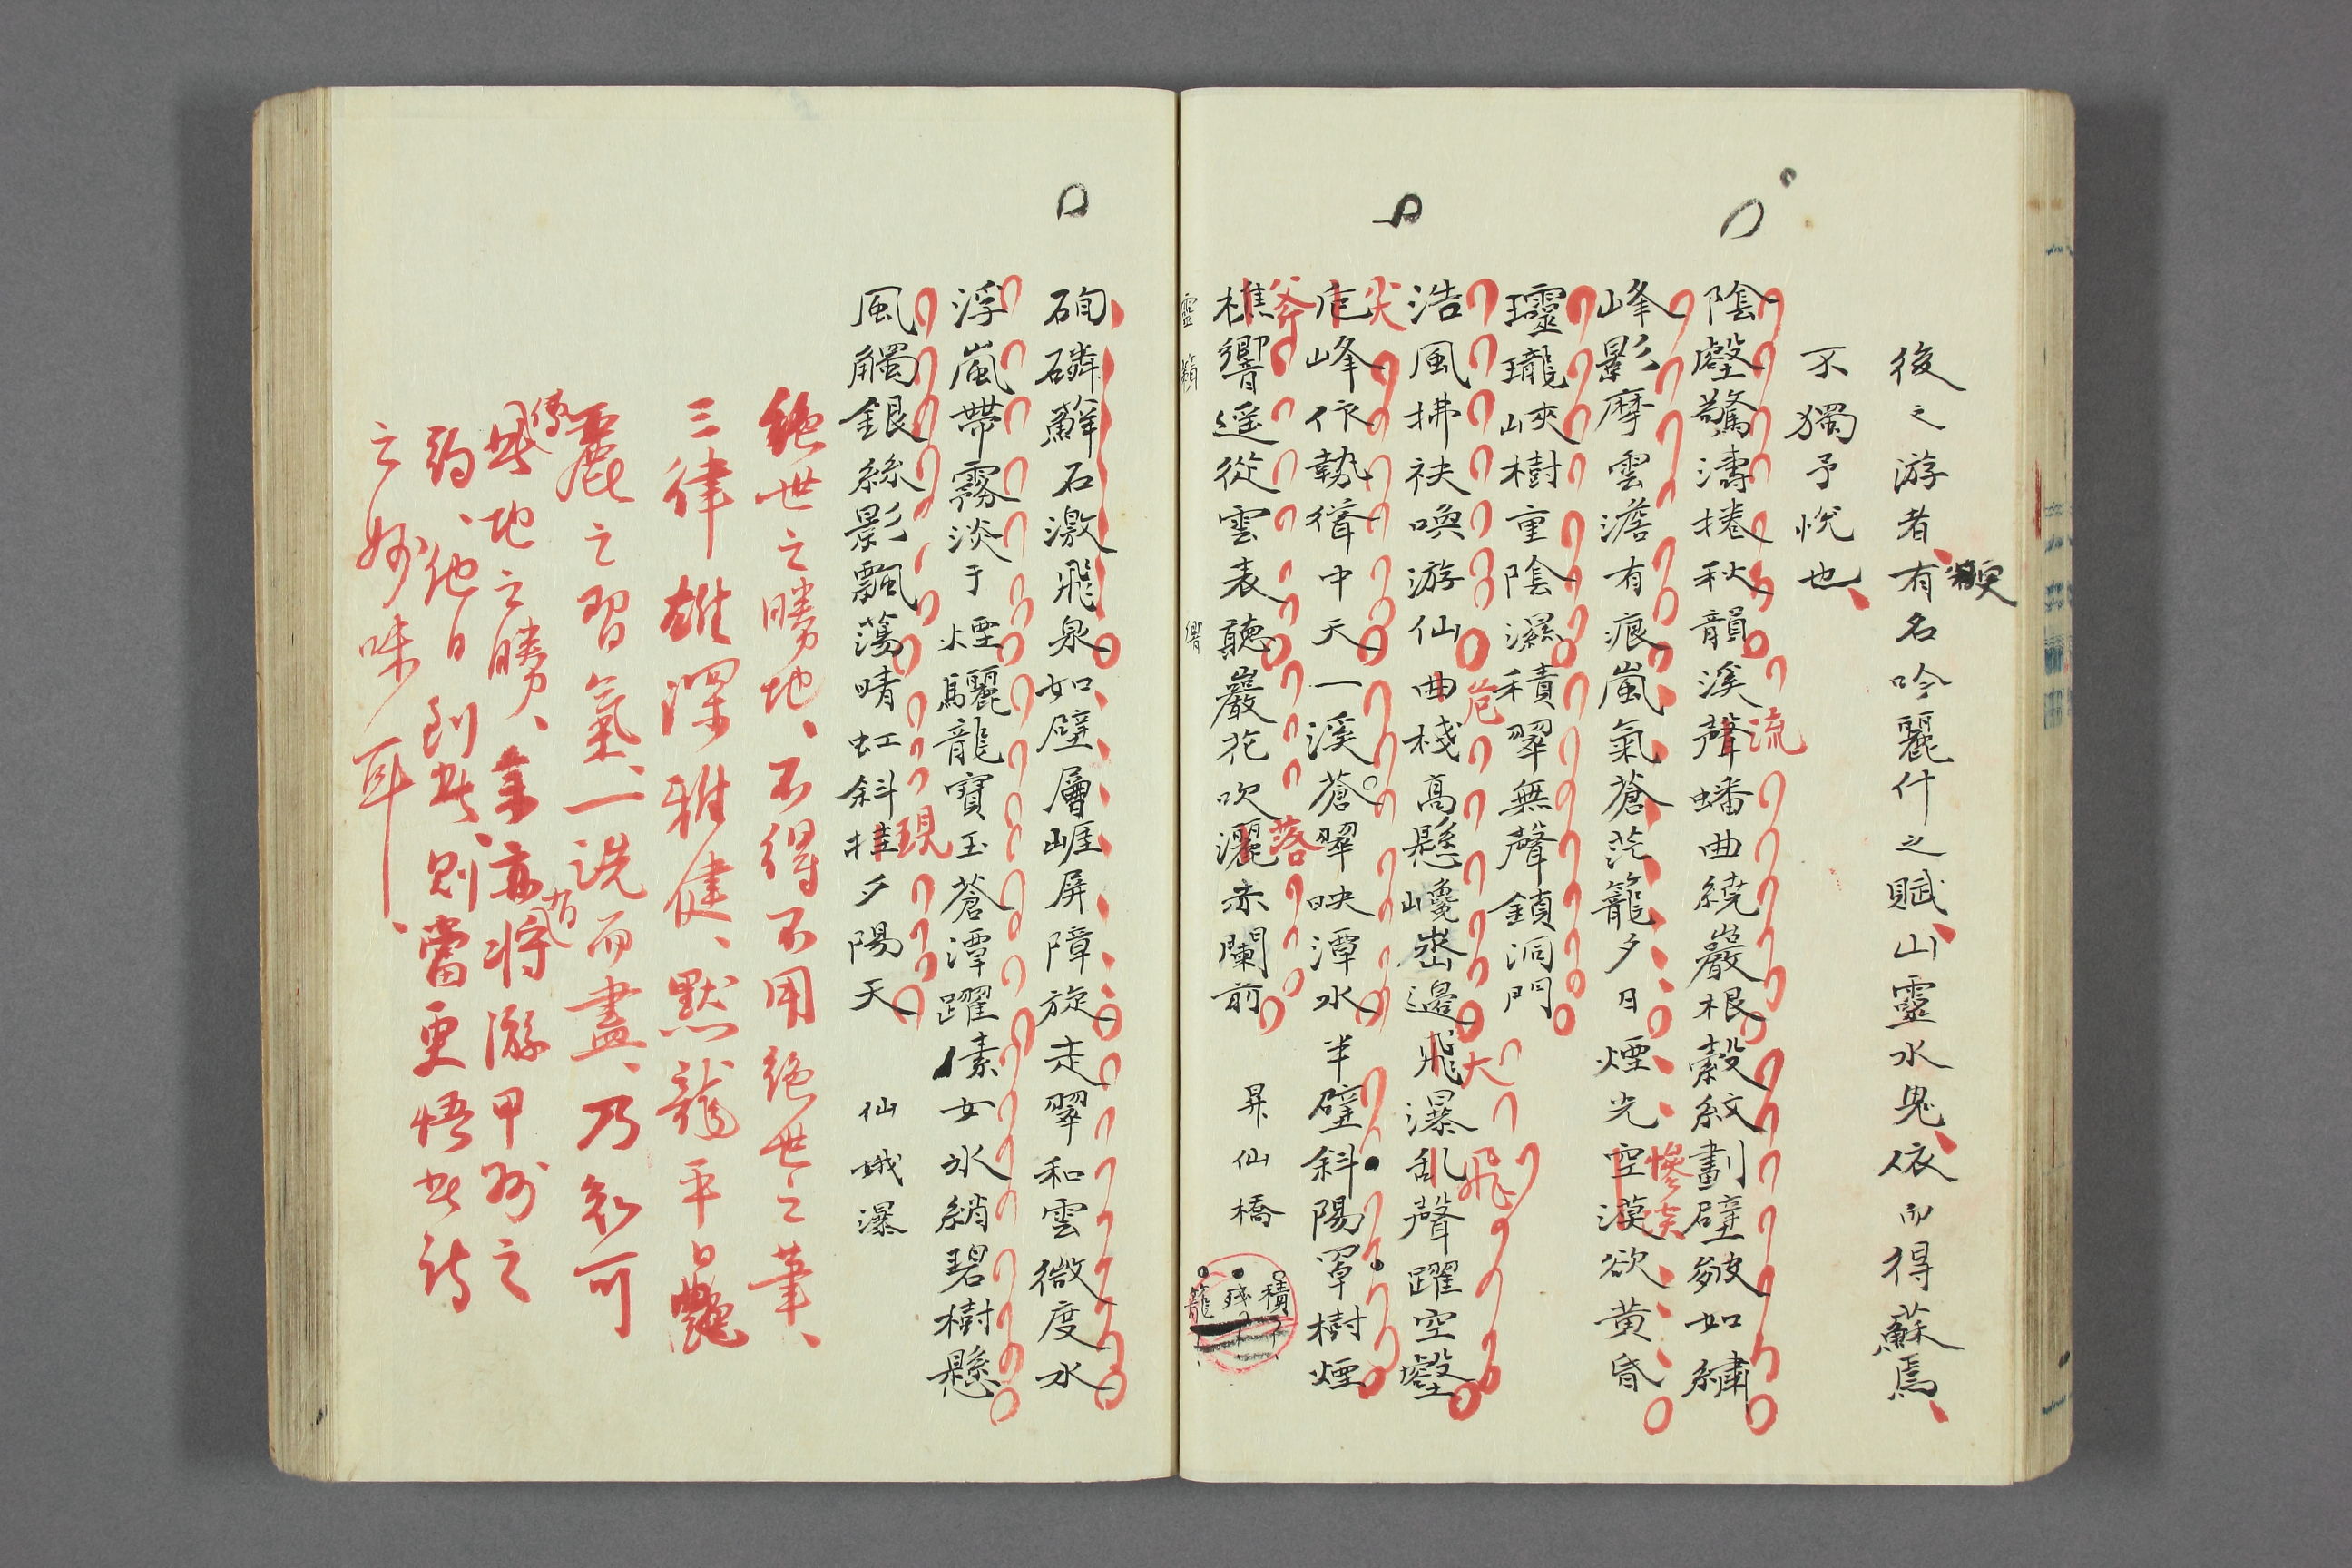 後之游者有名吟麗什之賦山靈水鬼依而得蘇焉
更
不獨予悦也
陰壑驚濤捲秋韻溪聲蟠曲繞巖根縠紋劃壁皴如繡
流
峰影摩雲澹有痕嵐氣蒼茫籠夕日煙光空漠欲黄昏
慘淡
瓏峽樹重陰濕積翠無聲鎖洞門
浩風拂袂喚游仙曲棧高懸巉崿邊飛瀑乱聲躍空壑
危
大
飛
危峰依勢聳中天一溪蒼翠映潭水半壁斜陽罩樹煙
尖
樵響遥從雲表聽巖花吹灑赤闌前 昇仙橋
斧
落
靈
響
積
殘
籠
磷蘚石激飛泉如壁層崕屏障旋走翠和雲微度水
浮嵐帶霧淡于煙驪龍寶玉蒼潭躍素女氷綃碧樹懸
風觸銀絲影飄蕩晴虹斜挂夕陽天 仙娥瀑
現
絶世之勝地、不得不用絶世之筆、
三律雄深雅健、默龍平日艶
麗之習氣、一洗而盡、乃知可
傳
此地之勝、余亦將游甲州之
有
約、他日到此、則當更悟此詩
之妙味耳、